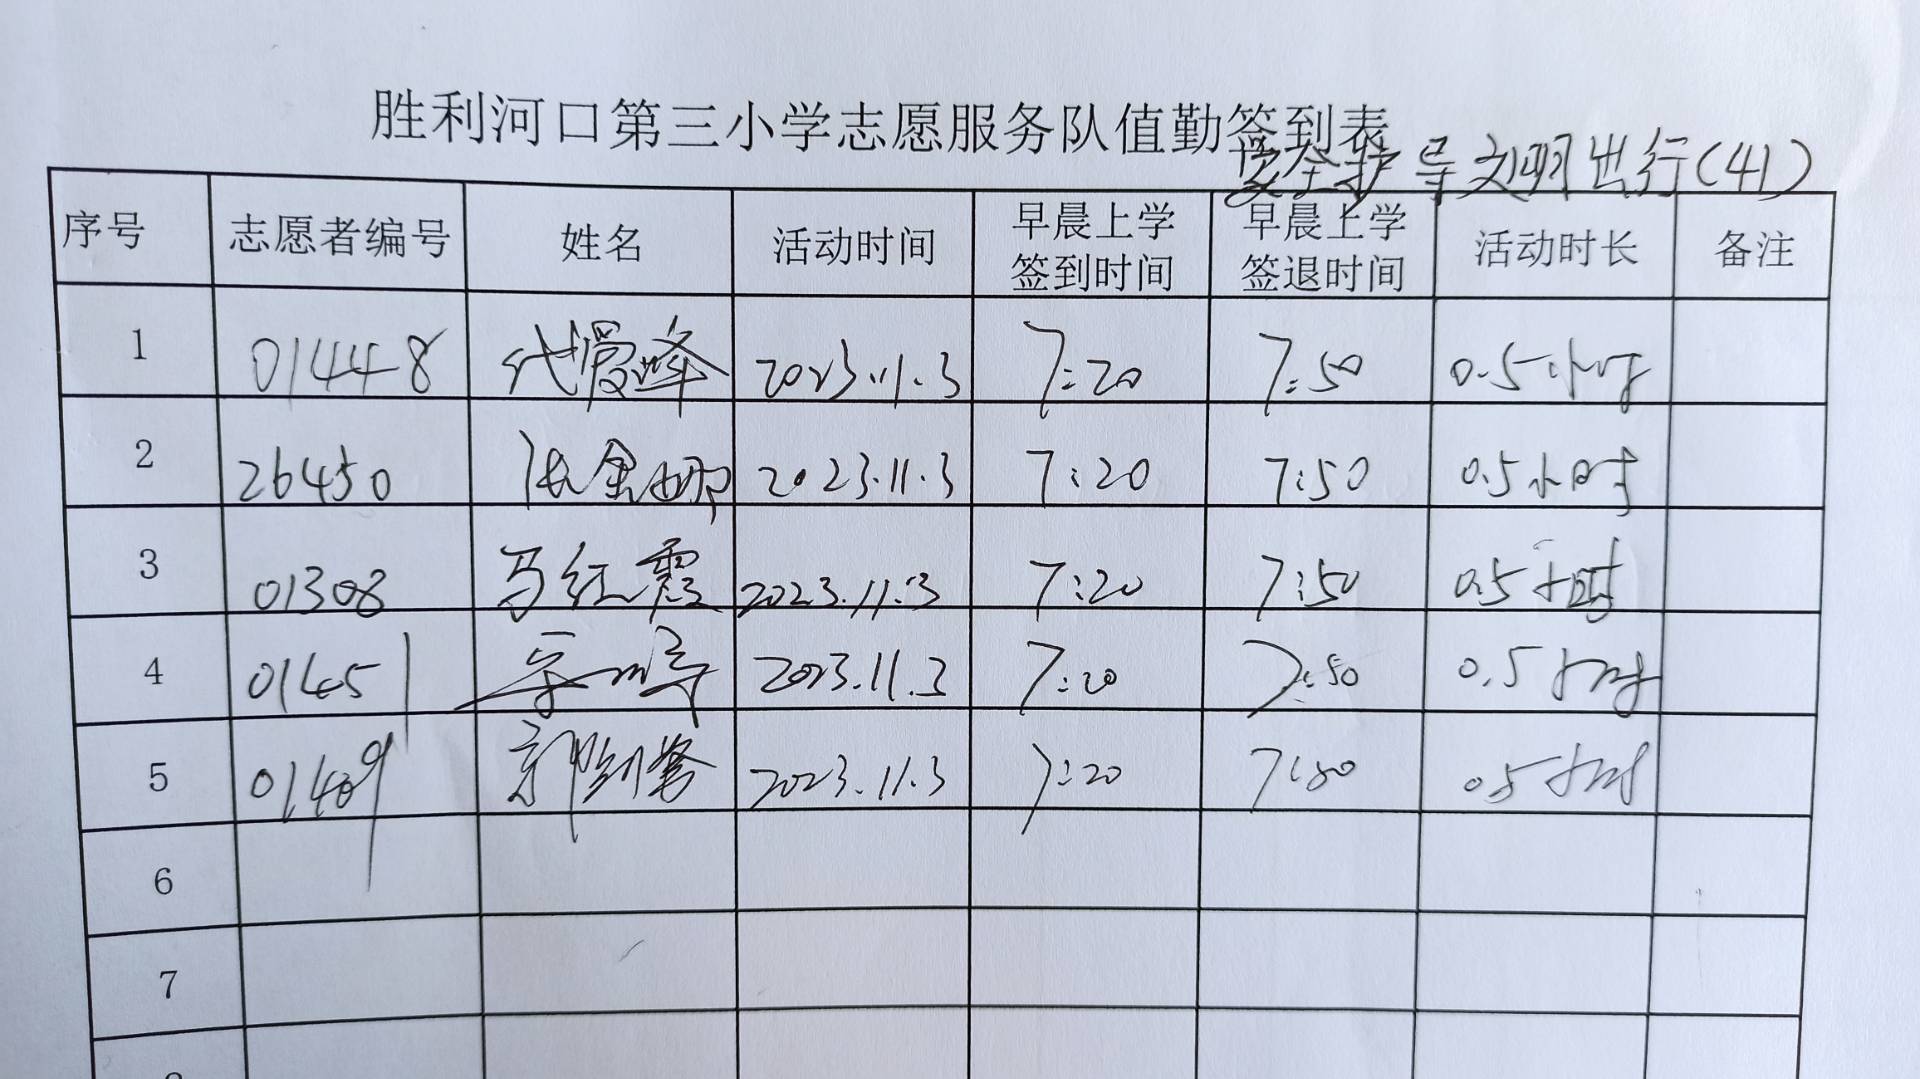 胜利河口第三小学志愿服务队值勤签到表
安全护导文明出行(41)
序号 志愿者编号 姓名 活动时间 早晨上学签到时间 早晨上学签退时间 活动时长 备注
1 01448 代爱峰 2023.11.3 7:20 7:50 0.5小时
2 26450 张金娜 2023.11.3 7:20 7:50 0.5小时
3 01308 马红霞 2023.11.3 7:20 7:50 0.5小时
4 01451 2023.11.3 7:20 7:50 0.5小时
5 01409 2023.11.3 7:20 7:50 0.5小时
6
7